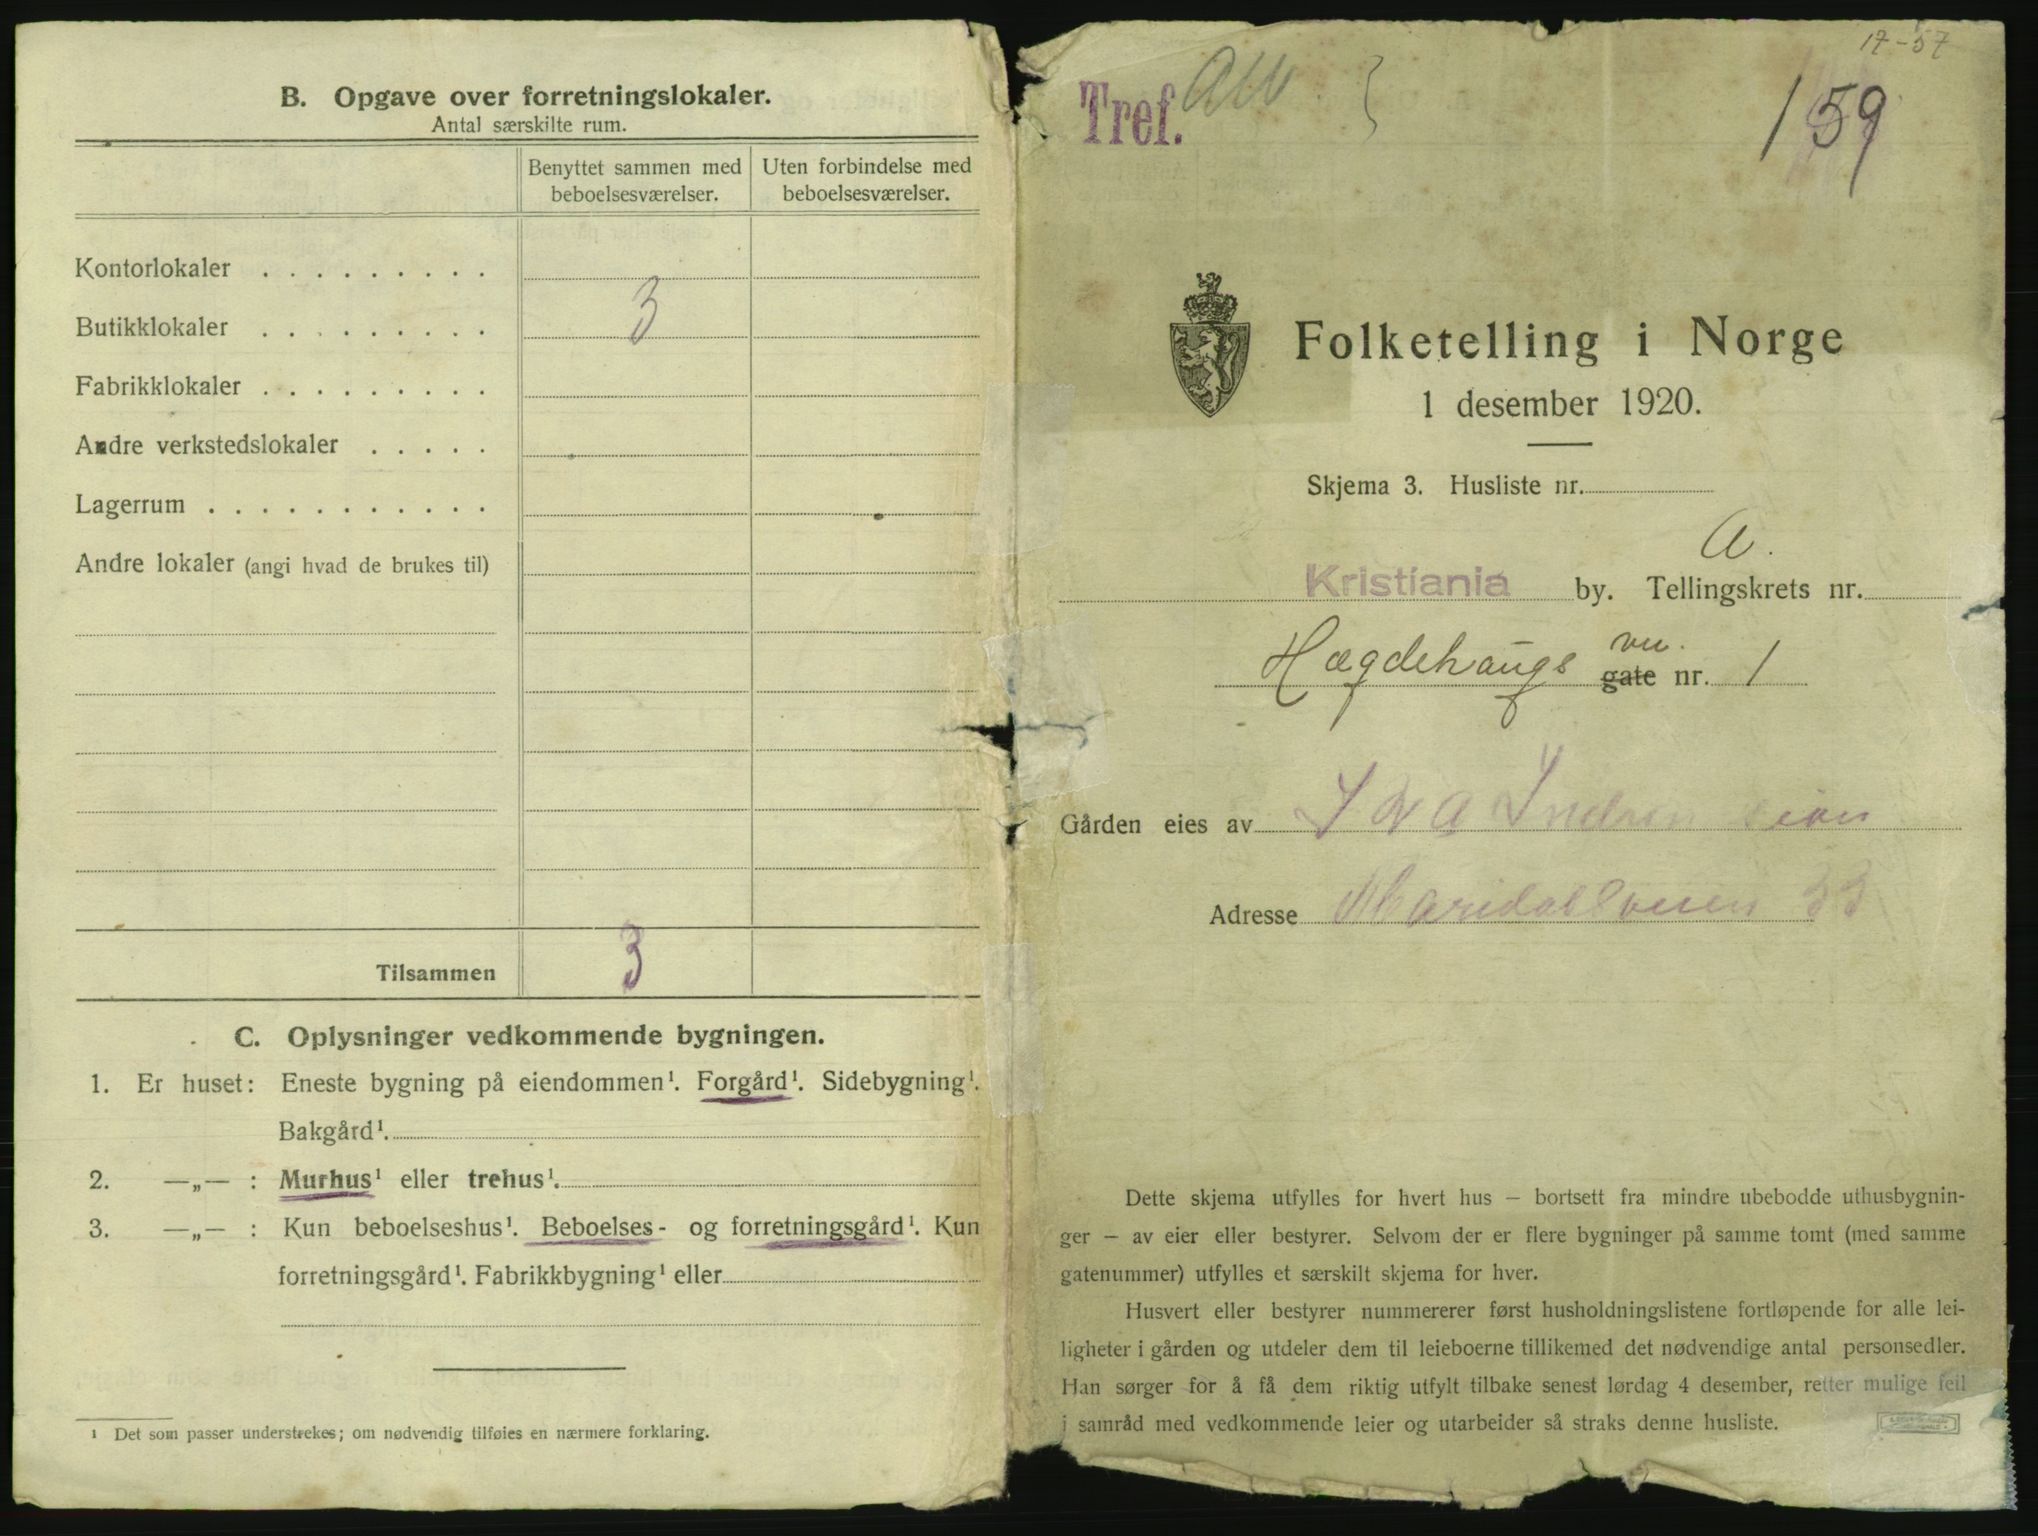 B. Opgave over forretningslokaler.
Antal særskilte rum.
Benyttet sammen med beboelsesværelser.
Uten forbindelse med beboelsesværelser.
Kontorlokaler . . . . . . . . .
Butikklokaler . . . . . . . . . 3
Fabrikklokaler . . . . . . . . .
Andre verkstedslokaler . . . . .
Lagerrum . . . . . . . . . . .
Andre lokaler (angi hvad de brukes til)
Tilsammen 3
C. Oplysninger vedkommende bygningen.
1. Er huset: Eneste bygning på eiendommen¹. Forgård¹. Sidebygning¹.
Bakgård¹.
2. —„— : Murhus¹ eller trehus¹.
3. —„— : Kun beboelseshus¹. Beboelses- og forretningsgård¹. Kun
forretningsgård¹. Fabrikkbygning¹ eller
¹ Det som passer understrekes; om nødvendig tilføies en nærmere forklaring.
17-57
Tref.
159
Folketelling i Norge
1 desember 1920.
Skjema 3. Husliste nr.
A.
Kristiania by. Tellingskrets nr.
vn.
Hægdehaugs gate nr. 1
Gården eies av
Adresse Maridalsveien 33
Dette skjema utfylles for hvert hus – bortsett fra mindre ubebodde uthusbygnin-
ger – av eier eller bestyrer. Selvom der er flere bygninger på samme tomt (med samme
gatenummer) utfylles et særskilt skjema for hver.
Husvert eller bestyrer nummererer først husholdningslistene fortløpende for alle lei-
ligheter i gården og utdeler dem til leieboerne tillikemed det nødvendige antal personsedler.
Han sørger for å få dem riktig utfylt tilbake senest lørdag 4 desember, retter mulige feil
i samråd med vedkommende leier og utarbeider så straks denne husliste.